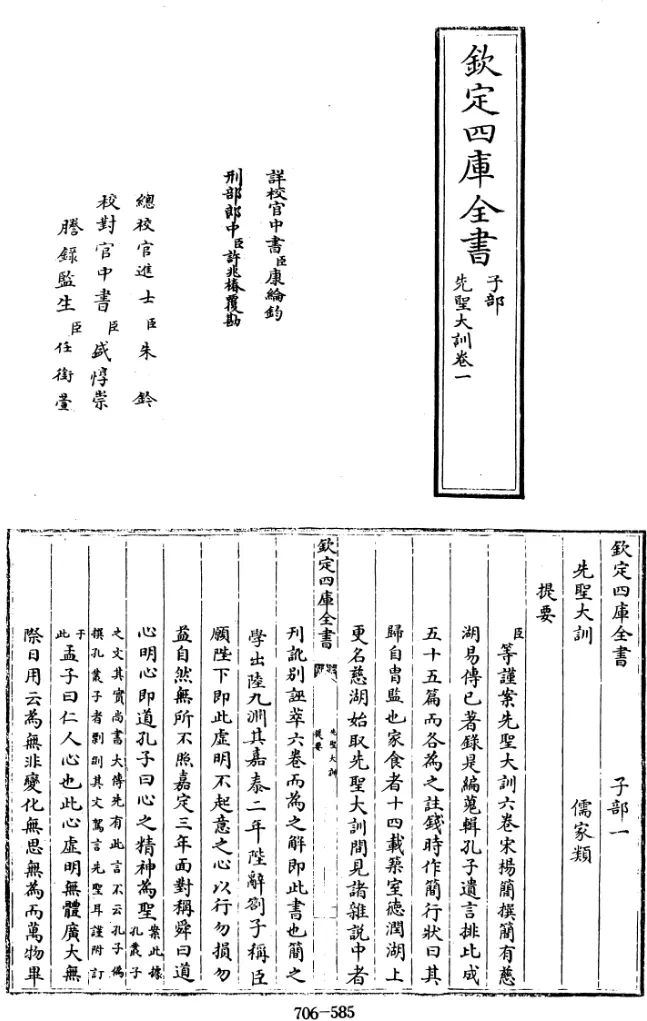 欽定四庫全書
子部
先聖大訓卷一
詳校官中書臣康綸鈞
刑部郎中臣許兆椿覆勘
總校官進士臣朱鈐
校對官中書臣盛惇崇
謄錄監生臣任銜蕙
欽定四庫全書 子部一
先聖大訓 儒家類
提要
臣等謹案先聖大訓六卷宋楊簡撰簡有慈
湖易傳已著錄是編蒐輯孔子遺言排比成
五十五篇而各為之註錢時作簡行狀曰其
歸自冑監也家食者十四載築室德潤湖上
更名慈湖始取先聖大訓間見諸雜説中者
欽定四庫全書
先聖大訓
提要
刊訛别誣萃六卷而為之解即此書也簡之
學出陸九淵其嘉泰二年陛辭劄子稱臣
願陛下即此虚明不起意之心以行勿損勿
益自然無所不照嘉定三年面對稱舜曰道
心明心即道孔子曰心之精神為聖案此據孔叢子
之文其實尚書大傳先有此言不云孔子偽
撰孔叢子者剽剟其文駕言先聖耳謹附訂
于此孟子曰仁人心也此心虚明無體廣大無
際日用云為無非變化無思無為而萬物畢
706-585